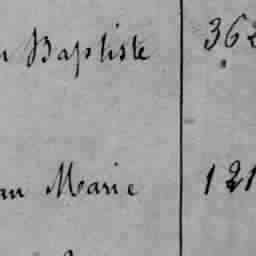 Baptiste 362
Marie 121